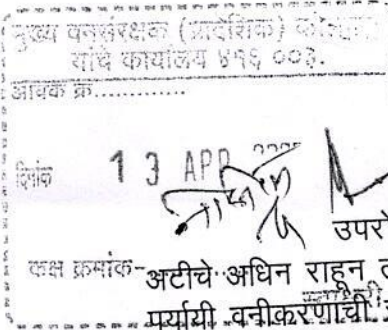 मुख्य वनसंरक्षक (प्रादेशिक)
यांचे कार्यालय ४१६ ००३.
आवक क्र..............
दिनांक 13 APR
उपरो
कक्ष क्रमांक-
अटीचे अधिन राहून
पर्यायी वनीकरणाची